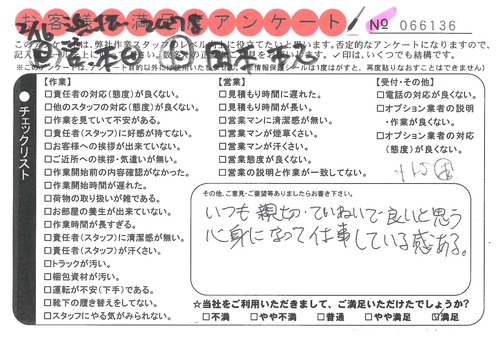 お客様満足アンケート
No 066136
このアンケートは、弊社作業スタッフのレベル向上に役立てたいと思います。否定的なアンケートになりますので、
※このアンケートは、アンケート目的以外には使用いたしません。
チェックリスト
【作業】
□責任者の対応(態度)が良くない。
□他のスタッフの対応(態度)が良くない。
□作業を見ていて不安がある。
□責任者(スタッフ)に好感が持てない。
□お客様への挨拶が出来ていない。
□ご近所への挨拶・気遣いが無い。
□作業開始前の内容確認がなかった。
□作業開始時間が遅れた。
□荷物の取り扱いが雑である。
□お部屋の養生が出来ていない。
□作業時間が長すぎる。
□責任者(スタッフ)に清潔感が無い。
□責任者(スタッフ)が汗くさい。
□トラックが汚い。
□梱包資材が汚い。
□運転が不安(下手)である。
□靴下の履き替えをしてない。
□スタッフにやる気がみられない。
【営業】
□見積もり時間に遅れた。
□見積もり時間が長い。
□営業マンに清潔感が無い。
□営業マンが煙草くさい。
□営業マンが汗くさい。
□営業態度が良くない。
□営業の説明と作業が一致してない。
【受付・その他】
□電話の対応が良くない。
□オプション業者の説明
・作業が良くない。
□オプション業者の対応
(態度)が良くない。
その他、ご意見・ご要望等ありましたらお書き下さい。
いつも親切・ていねいで良いと思う
心身になって仕事している感ある。
☆当社をご利用いただきまして、ご満足いただけたでしょうか?
□不満 □やや不満 □普通 □やや満足 ☑満足